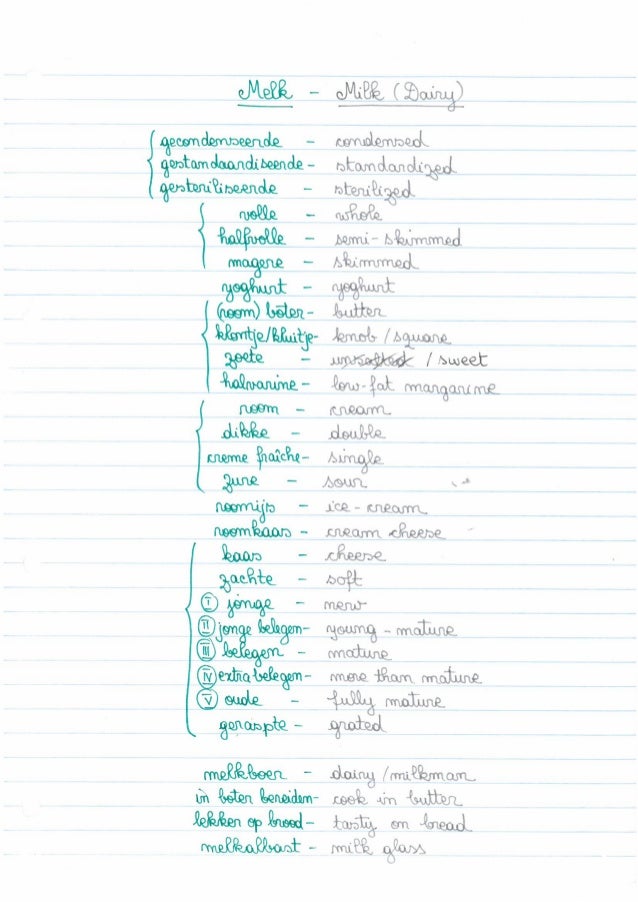 Melk - Milk (Dairy)
gecondenseerde - condensed
gestandaardiseerde - standardized
gesteriliseerde - sterilized
volle - whole
halfvolle - semi-skimmed
magere - skimmed
yoghurt - yoghurt
(room) boter - butter
klontje/kluitje - knob / square
zoete - unsalted / sweet
halvarine - low-fat margarine
room - cream
dikke - double
creme fraîche - single
zure - sour
roomijs - ice-cream
roomkaas - cream cheese
kaas - cheese
zachte - soft
I jonge - new
II jonge belegen - young-mature
III belegen - mature
IV extra belegen - more than mature
V oude - fully mature
geraspte - grated
melkboer - dairy/milkman
in boter bereiden - cook in butter
lekker op brood - tasty on bread
melkalbast - milk glass